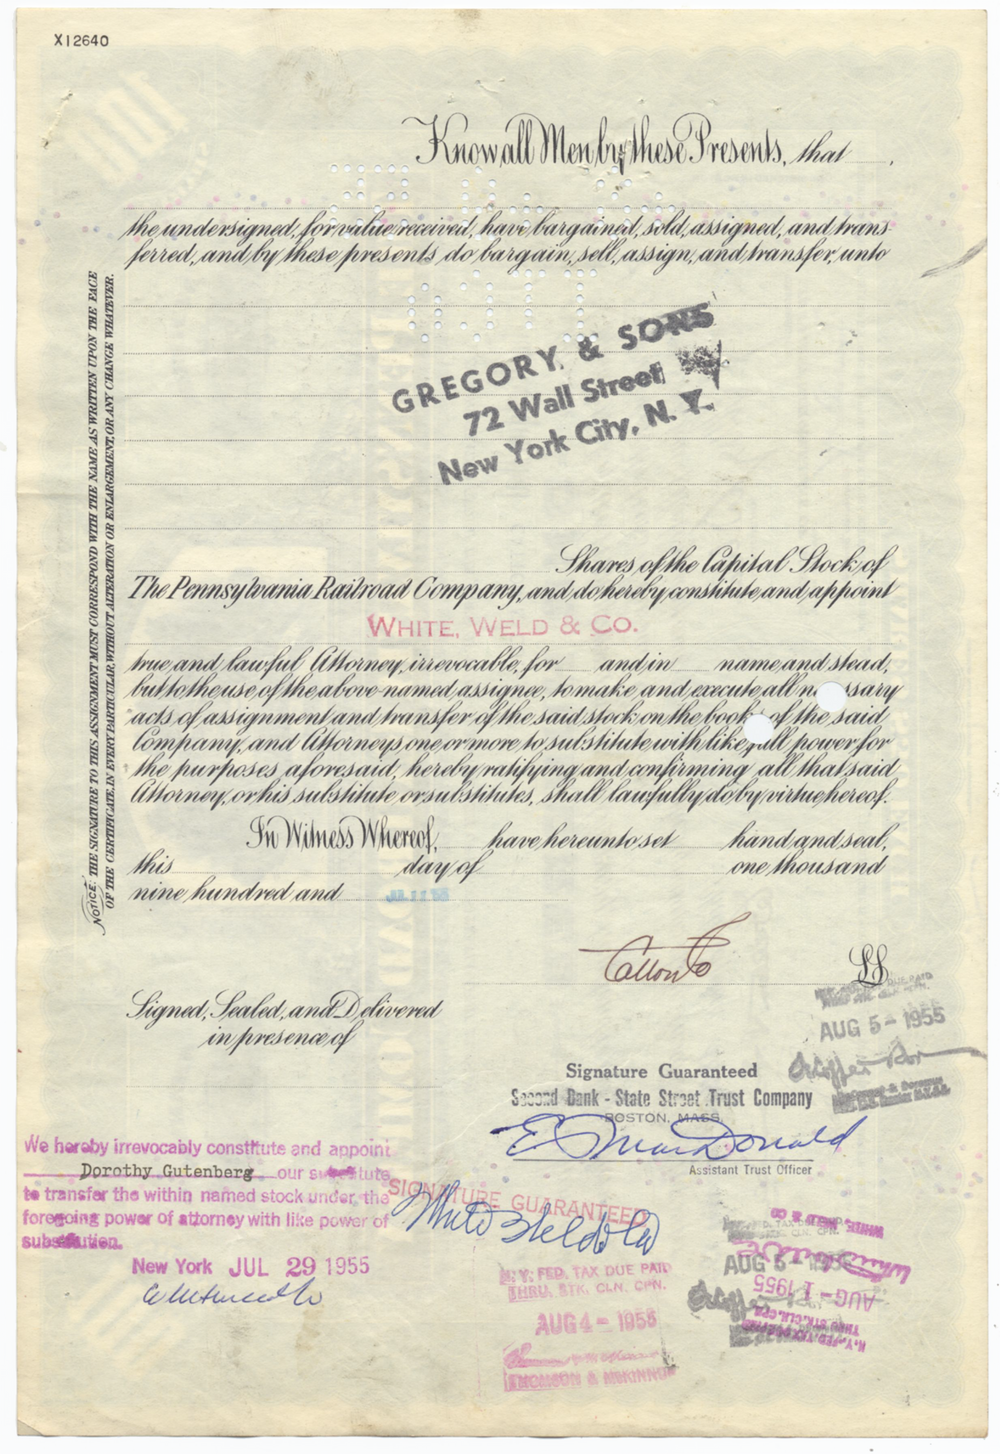 X12640
Know all Men by these Presents, that
the undersigned, for value received, have bargained, sold, assigned, and trans-
ferred, and by these presents do bargain, sell, assign, and transfer, unto
GREGORY & SONS
72 Wall Street
New York City, N. Y.
Shares of the Capital Stock of
The Pennsylvania Railroad Company, and do hereby constitute and appoint
WHITE, WELD & CO.
true and lawful Attorney, irrevocable, for and in name and stead,
but to the use of the above named assignee, to make and execute all n ssary
acts of assignment and transfer of the said stock on the books of the said
Company, and Attorneys, one or more to substitute with like full power for
the purposes aforesaid, hereby ratifying and confirming all that said
Attorney, or his substitute or substitutes, shall lawfully do by virtue hereof.
In Witness Whereof, have hereunto set hand and seal,
this day of one thousand
nine hundred and
L.S.
Signed, Sealed, and Delivered
in presence of
NOTICE: THE SIGNATURE TO THIS ASSIGNMENT MUST CORRESPOND WITH THE NAME AS WRITTEN UPON THE FACE
OF THE CERTIFICATE, IN EVERY PARTICULAR, WITHOUT ALTERATION OR ENLARGEMENT, OR ANY CHANGE WHATEVER.
AUG 5 - 1955
Signature Guaranteed
Second Bank - State Street Trust Company
BOSTON, MASS.
E. MacDonald
Assistant Trust Officer
We hereby irrevocably constitute and appoint
Dorothy Gutenberg our substitute
to transfer the within named stock under the
foregoing power of attorney with like power of
substitution.
New York JUL 29 1955
SIGNATURE GUARANTEED
White Weld & Co
N. Y. FED. TAX DUE PAID
THRU. STK. CLN. CPN.
AUG 4 - 1955
THOMSON & MCKINNON
WHITE, WELD & CO
AUG 5
AUG - 1 1955
THRU STK. CLN. CPN.
N. Y. FED. TAX DUE PAID